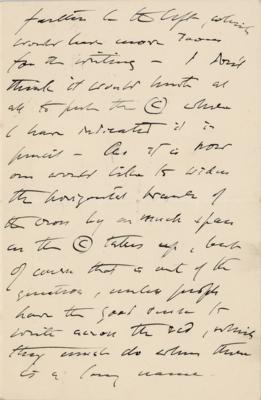 further to the left, which
would leave more room
for the writing — I don't
think it would hurt at
all to put the © where
I have indicated it in
pencil — As it is now
one would like to widen
the horizontal branch of
the cross by as much space
as the © takes up, but
of course that is out of the
question, unless people
have the good sense to
write across the red, which
they must do when there
is a long name.